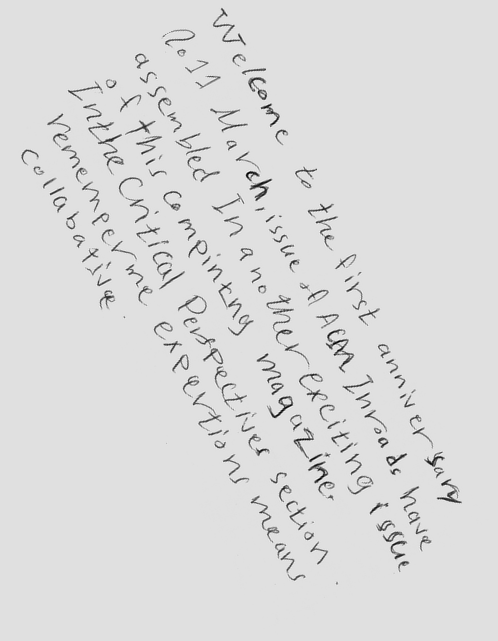 Welcome to the first anniversary
2011 March, issue of ACM Inroads have
assembled In another exciting issue
of this compintng magazine.
Inthe Critical Perspectives section
rememperme expertions means
collabative.